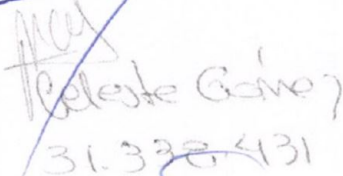 Celeste Gómez
31.338.431